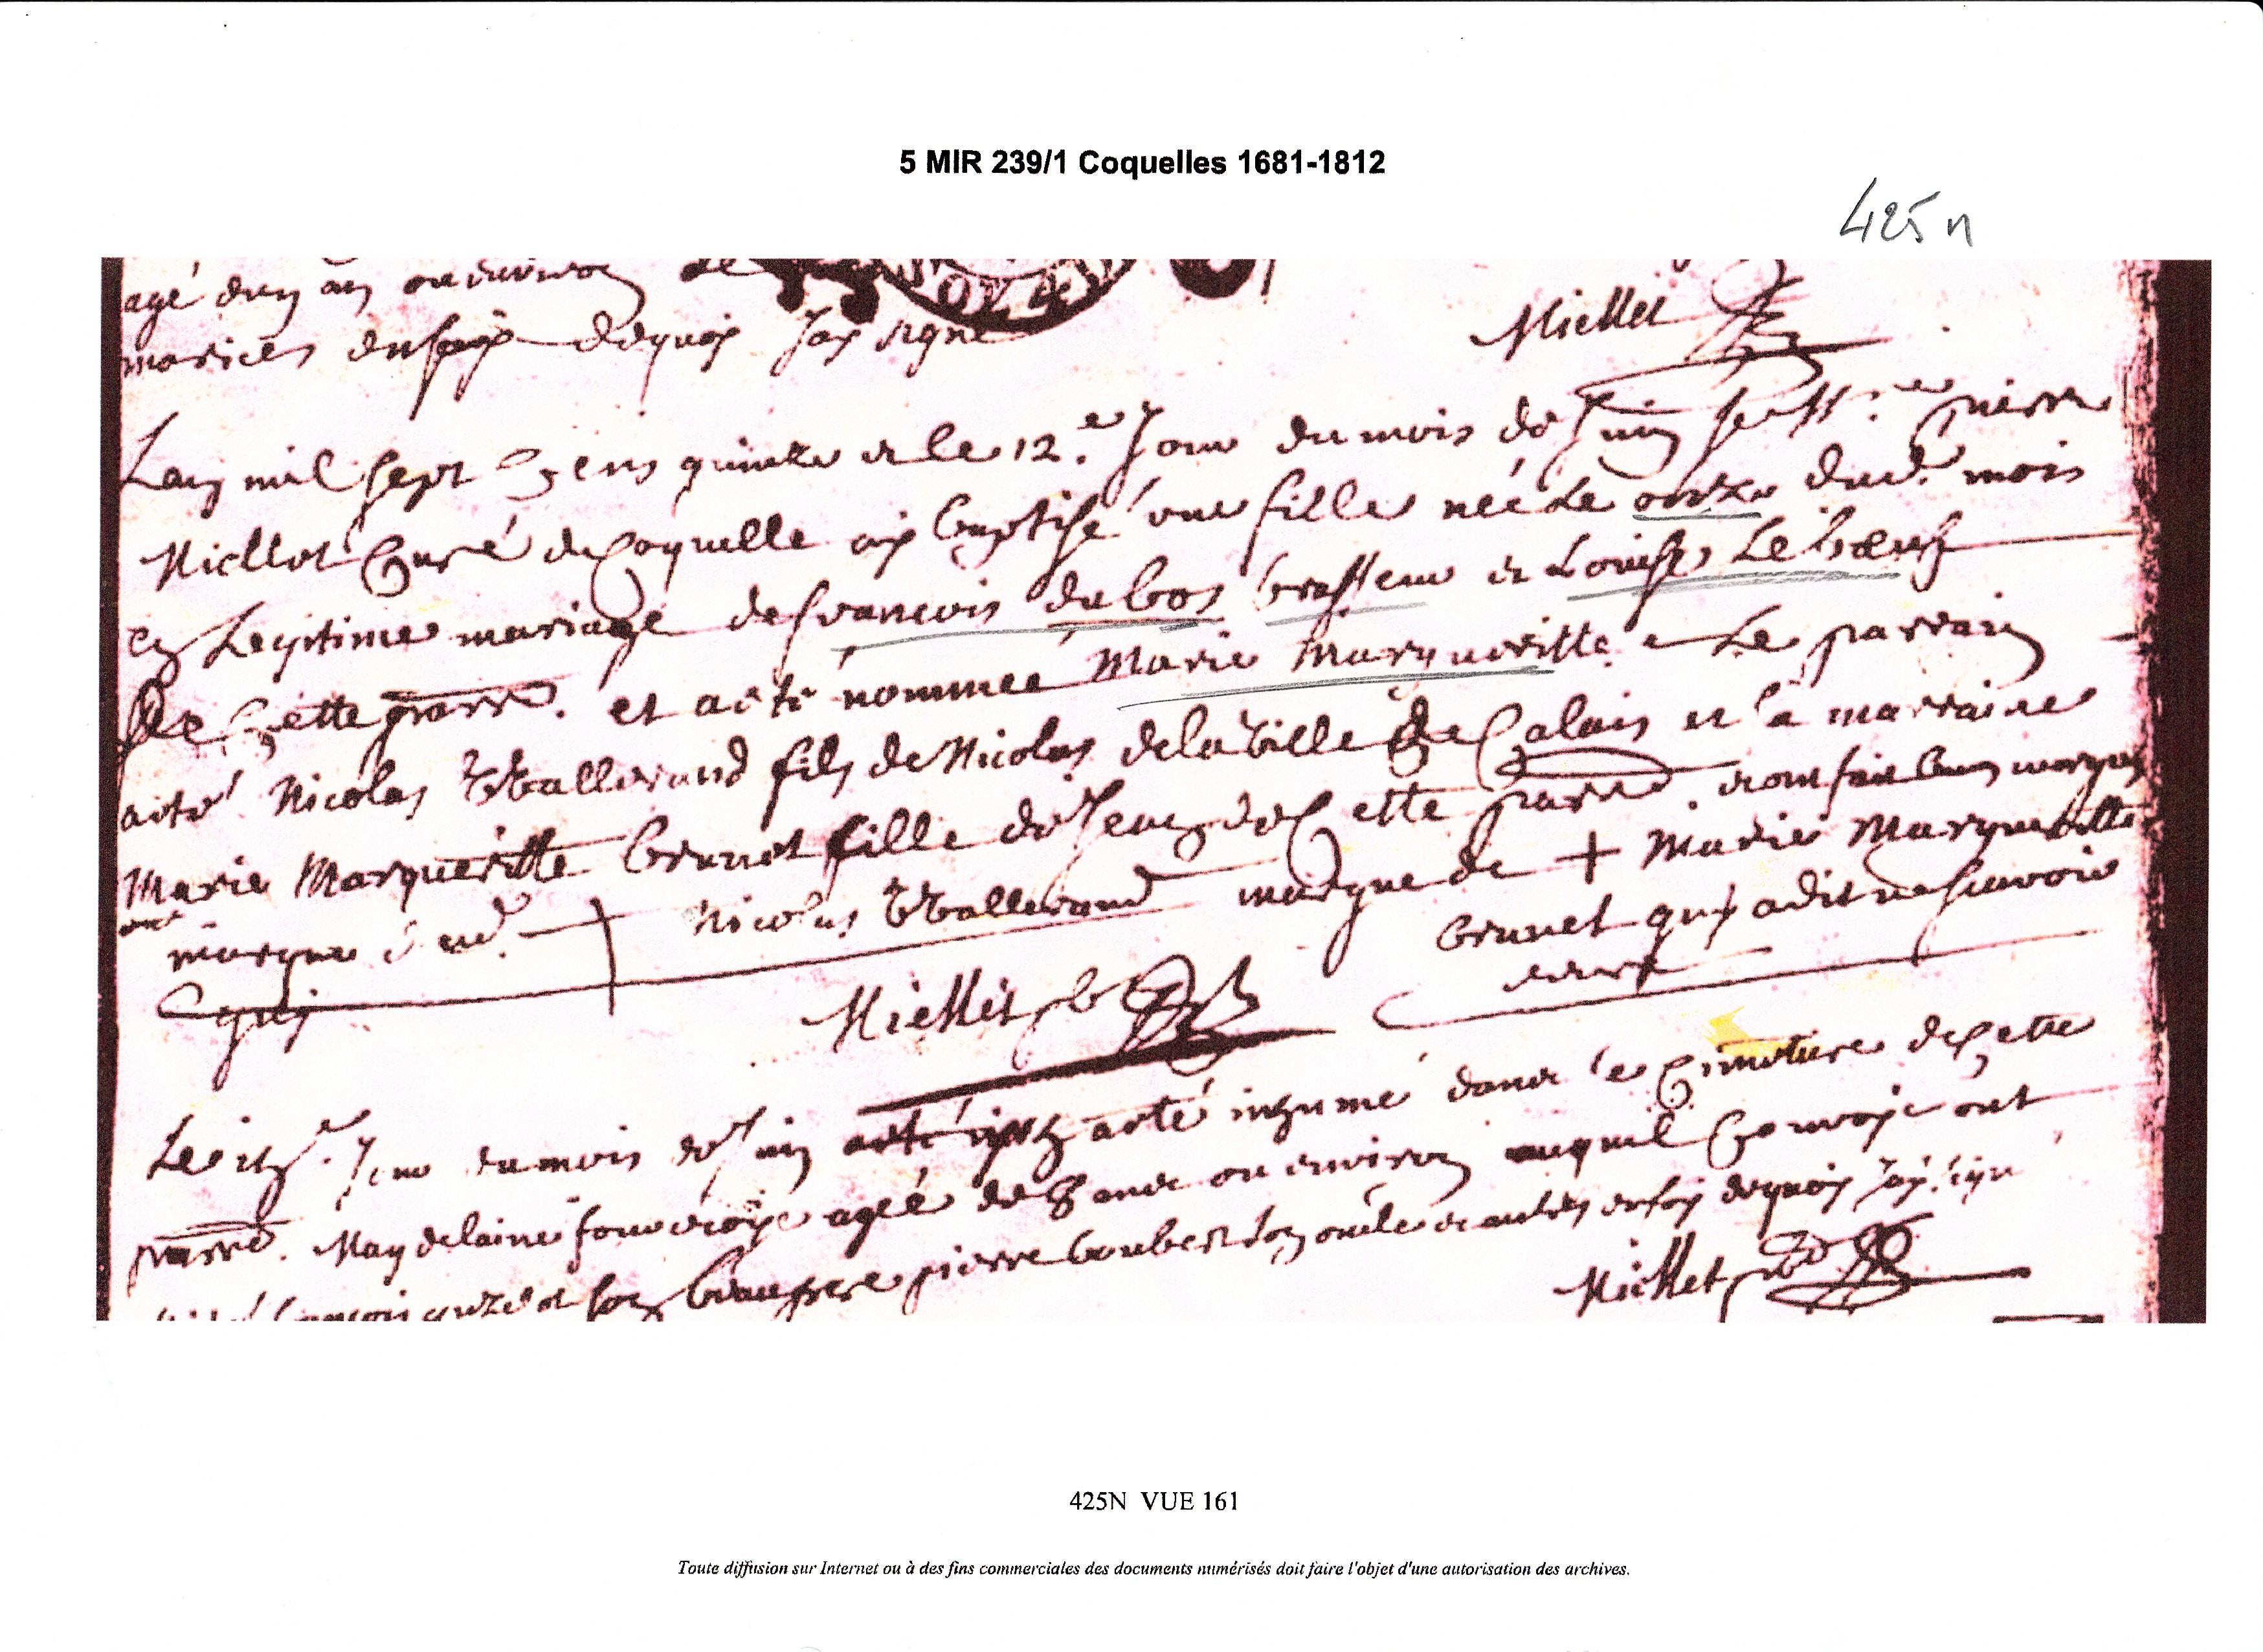 5 MIR 239/1 Coquelles 1681-1812
425 n
agé d'un an ou environ
en foy de quoy Jay signé
Miellet
Lan mil sept cens quinze et le 12.e Jour du mois de Juin pierre
Miellet Curé de Coquelle ay baptisé une fille née Le onze dud. mois
en Legitime mariage de francois dubos brasseur et Louise Leboeuf
de Cette parr. et a eté nommée Marie Margueritte Le parrain
a eté Nicolas fils de Nicolas de la ville de Calais et la marraine
Marie Margueritte brunet fille de Jean de Cette parr. et ont fait leurs marques
marque dud. + Nicolas marque de + Marie Margueritte
brunet qui a dit ne scavoir
Miellet
Le Jour du mois de Juin a eté inhumé dans le Cimetiere de Cette
parr. Magdelaine agée de 8 ans ou environ auquel Convoye ont
son beaupere pierre boubert son oncle et autres en foy de quoy Jay signé
Miellet
425N VUE 161
Toute diffusion sur Internet ou à des fins commerciales des documents numérisés doit faire l'objet d'une autorisation des archives.